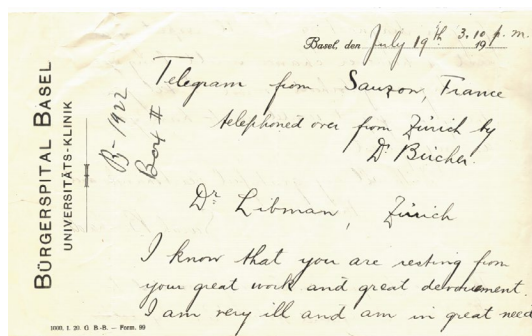 BÜRGERSPITAL BASEL
UNIVERSITÄTS-KLINIK
B-1922
Box II
Basel, den July 19th 3.10 p.m.
19
Telegram from Sauzon, France
telephoned over from Zürich by
Dr. Bircher.
Dr Libman, Zürich
I know that you are resting from
your great work and great devouement.
I am very ill and am in great nee
1000. 1. 20. O. B.-B. — Form. 99